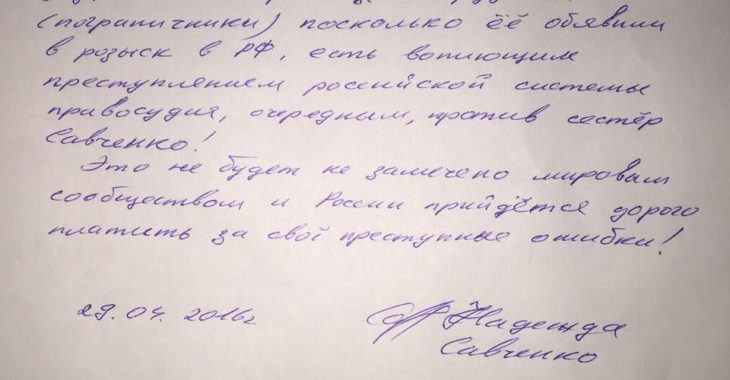 (пограничники) поскольку её обявили
в розыск в РФ, есть вопиющим
преступлением российской системы
правосудия, очередным, против сестёр
Савченко!
Это не будет не замечено мировым
сообществом и России прийдётся дорого
платить за свої преступные ошибки!
29.04. 2016г. Надежда
Савченко